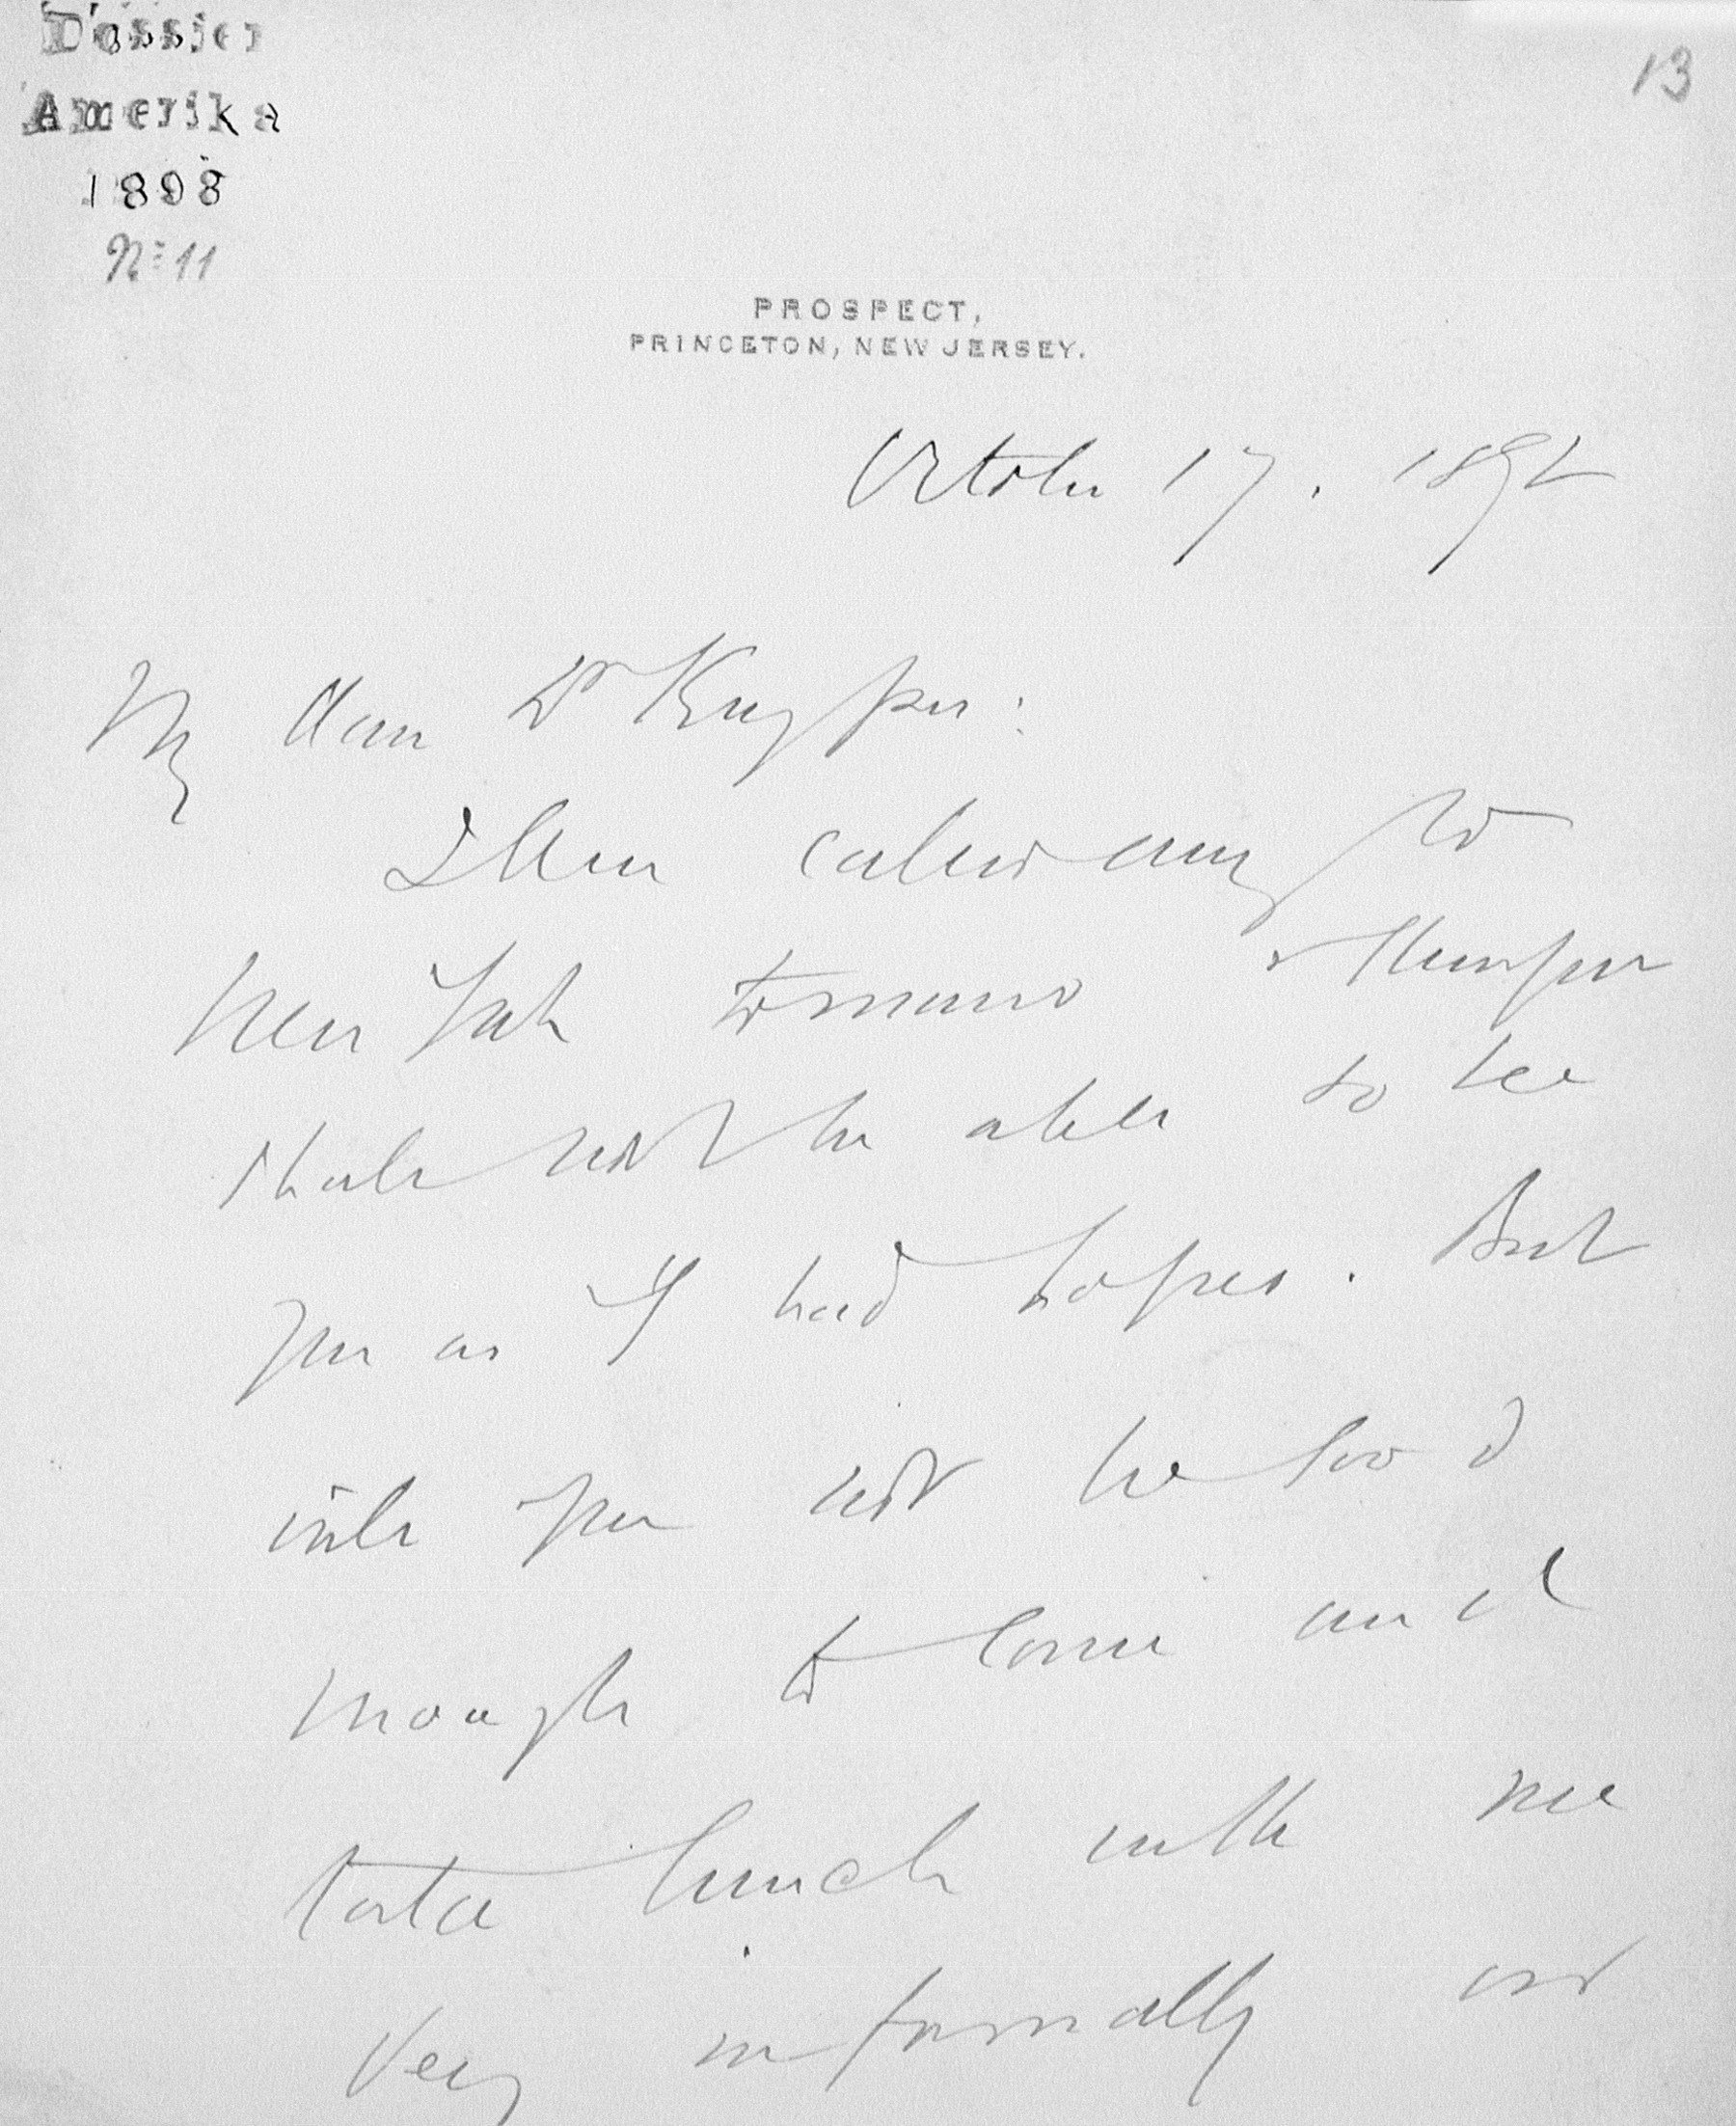 Dossier
Amerika
1898
No 11
13
PROSPECT,
PRINCETON, NEW JERSEY.
October 17. 1898
My dear Dr Kuyper:
I have called away to
New York tomorrow & therefore
shall not be able to see
you as I had hoped. But
will you not be good
enough to come and
take lunch with me
very informally on